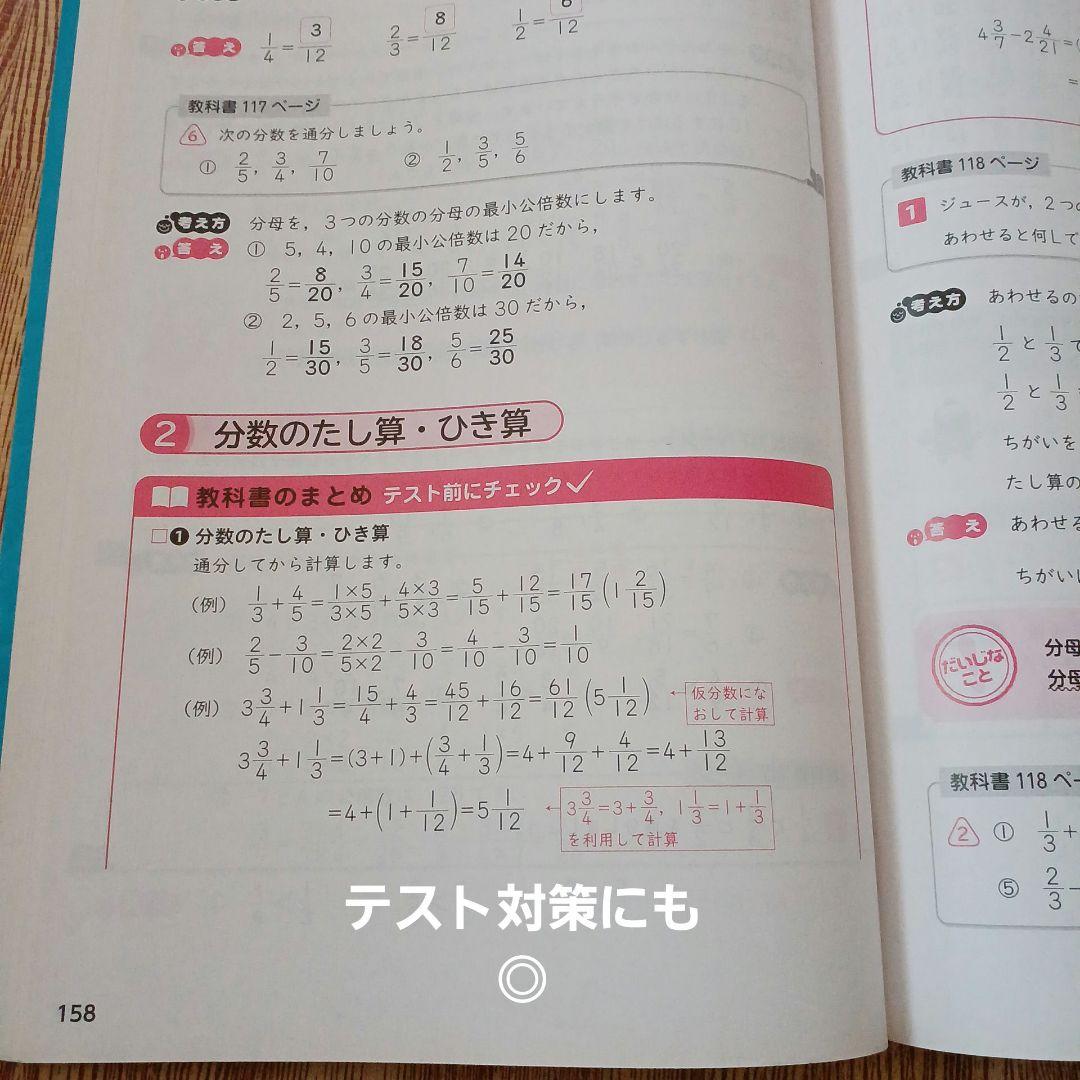 答え 1/4=3/12 2/3=8/12 1/2=6/12
教科書117ページ
6 次の分数を通分しましょう。
① 2/5, 3/4, 7/10 ② 1/2, 3/5, 5/6
考え方 分母を，3つの分数の分母の最小公倍数にします。
答え ① 5，4，10の最小公倍数は20だから，
2/5=8/20, 3/4=15/20, 7/10=14/20
② 2，5，6の最小公倍数は30だから，
1/2=15/30, 3/5=18/30, 5/6=25/30
2 分数のたし算・ひき算
教科書のまとめ テスト前にチェック✓
□❶ 分数のたし算・ひき算
通分してから計算します。
（例） 1/3+4/5=1×5/3×5+4×3/5×3=5/15+12/15=17/15(1 2/15)
（例） 2/5-3/10=2×2/5×2-3/10=4/10-3/10=1/10
（例） 3 3/4+1 1/3=15/4+4/3=45/12+16/12=61/12(5 1/12)
←仮分数にな
おして計算
3 3/4+1 1/3=(3+1)+(3/4+1/3)=4+9/12+4/12=4+13/12
=4+(1+1/12)=5 1/12
←3 3/4=3+3/4, 1 1/3=1+1/3
を利用して計算
テスト対策にも
◎
158
4 3/7-2 4/21=
=
教科書118ページ
1 ジュースが，2つ
あわせると何Lで
考え方 あわせるの
1/2と1/3
1/2と1/3
ちがいを
たし算の
答え あわせる
ちがいし
だいじな
こと
分母
分母
教科書118ペー
2 ① 1/3+
⑤ 2/3-